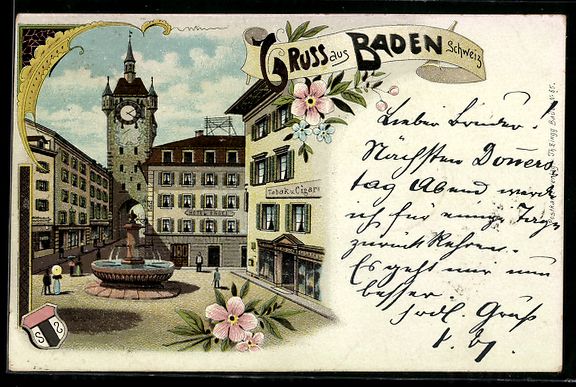 Gruss aus Baden
Schweiz
Tabak u. Cigar
Lieber Bruder!
Nächsten Donners
tag Abend werde
ich für einige Tage
zurück kehren.
Es geht mir nun
besser.
Gruß